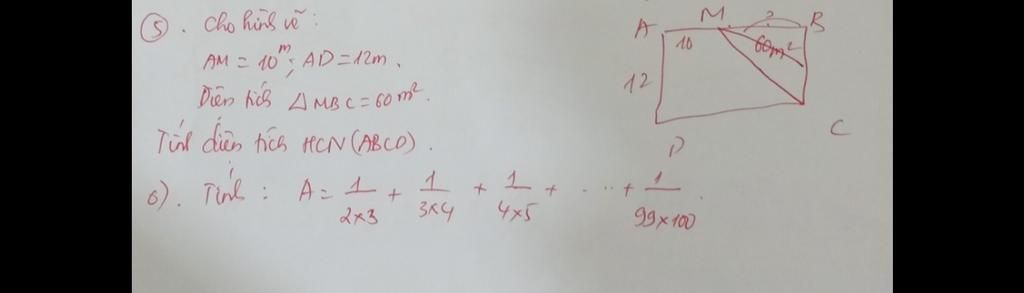 5. Cho hình vẽ:
AM = 10m; AD = 12m.
Diện tích △MBC = 60m².
Tính diện tích HCN (ABCD).
A M ? B
10 60m²
12
D C
6). Tính: A = 1/2×3 + 1/3×4 + 1/4×5 + ... + 1/99×100.